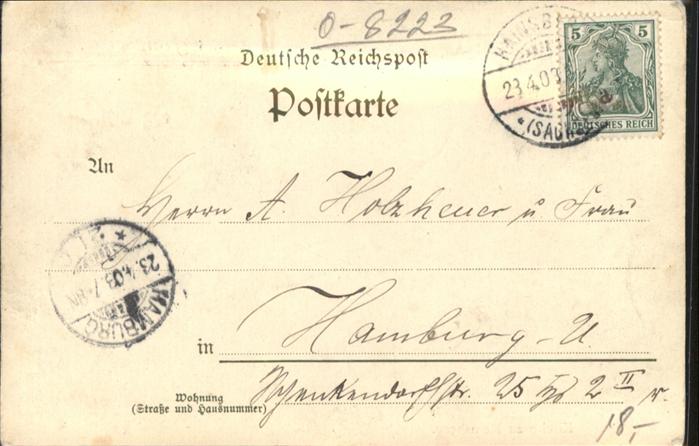 0-8223
Deutsche Reichspost
Postkarte
23.4.03
5 5
DEUTSCHES REICH
(SACHSEN)
An
Herrn A. Holzheuer u Frau
23.4.03. 7-8N
HAMBURG
in Hamburg-U.
Schenkendorffstr. 25 2 II r.
Wohnung
(Straße und Hausnummer)
18,-